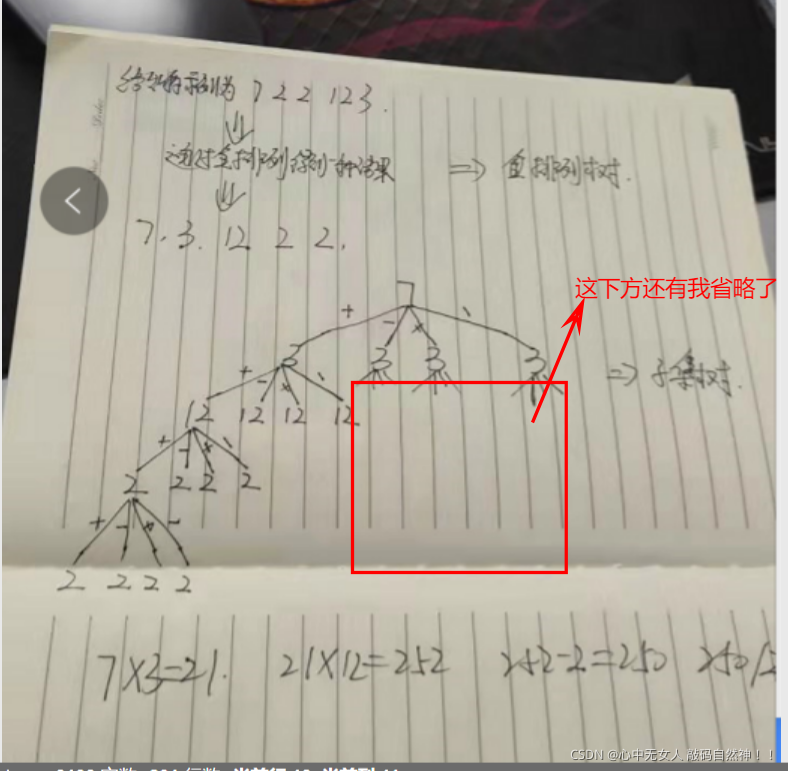 给期序列为 7 2 2 12 3.
通过全排列得到一种结果 ⇒ 全排列树.
7. 3. 12 2 2.
这下方还有我省略了
7
+ - × \
3 3 3 3
⇒ 子集树.
+ - × \
12 12 12 12
+ - × \
2 2 2 2
+ - × -
2 2 2 2
7×3=21. 21×12=252 252-2=250 250/2
CSDN @心中无女人 敲码自然神！！